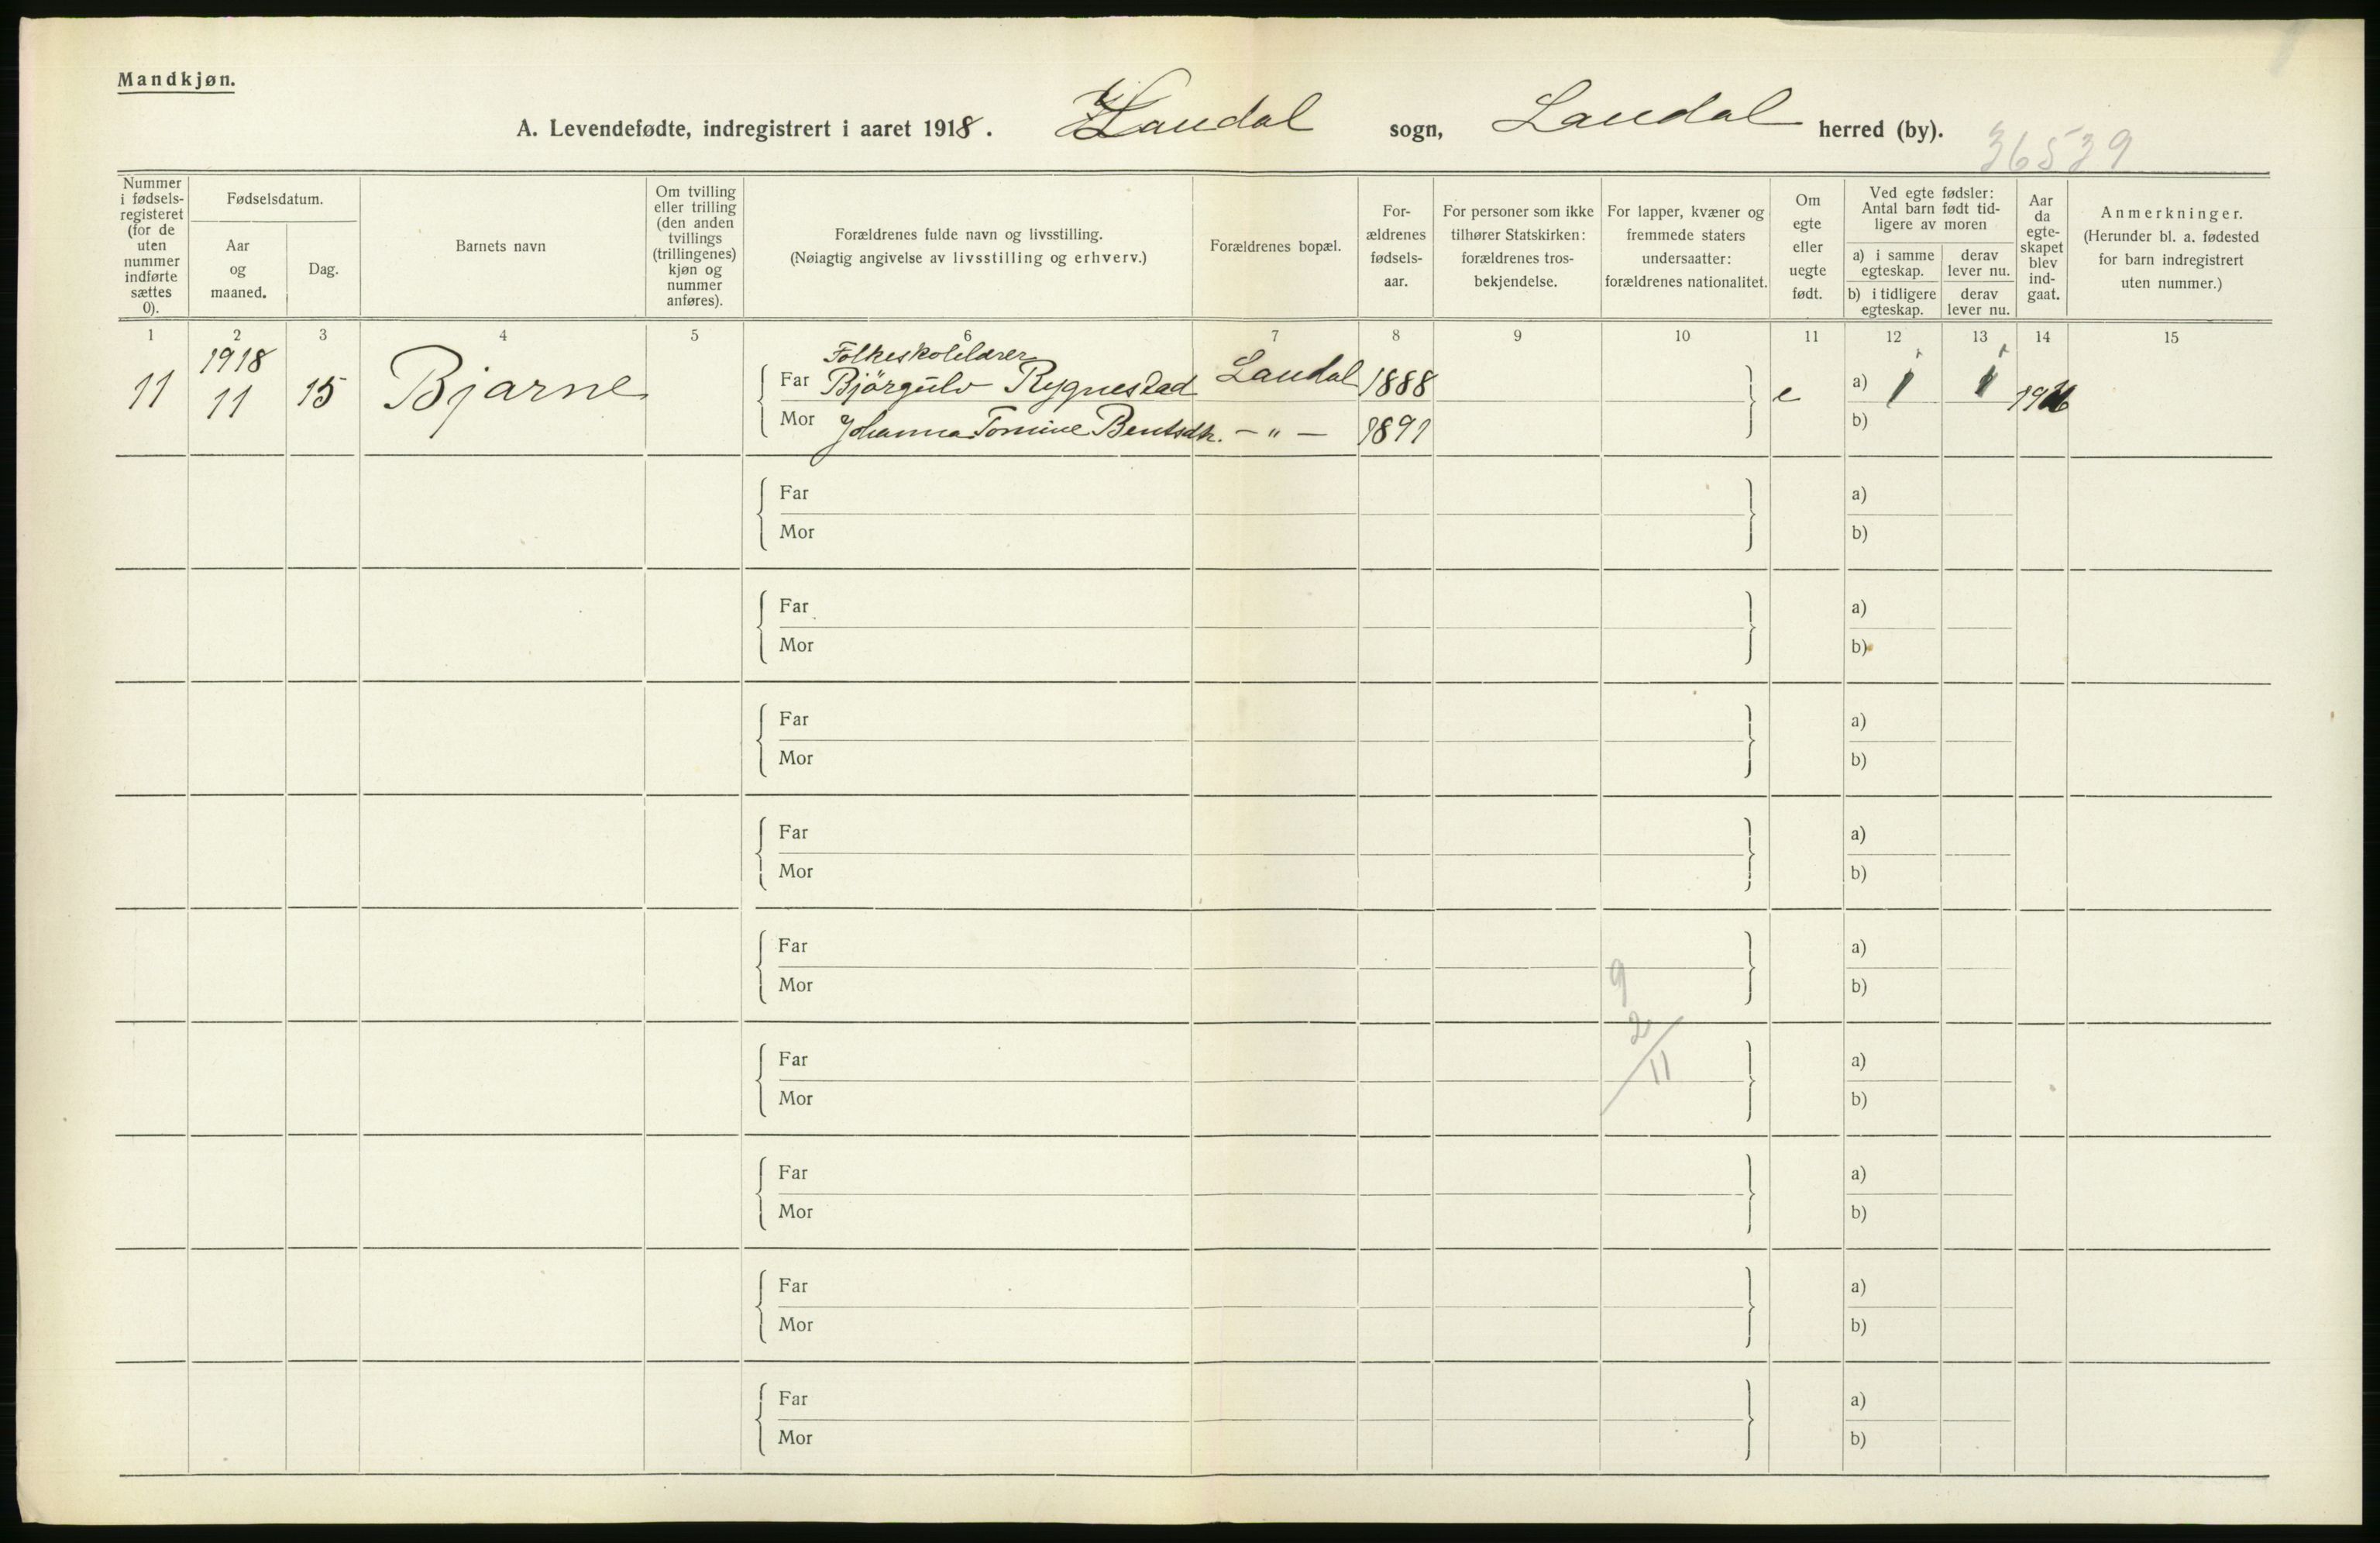 Mandkjøn.
A. Levendefødte, indregistrert i aaret 1918. Laudal sogn, Laudal herred (by).
36539
Nummer i fødsels-registeret (for de uten nummer indførte sættes 0).
Fødselsdatum.
Aar og maaned.
Dag.
Barnets navn
Om tvilling eller trilling (den anden tvillings (trillingenes) kjøn og nummer anføres).
Forældrenes fulde navn og livsstilling.
(Nøiagtig angivelse av livsstilling og erhverv.)
Forældrenes bopæl.
For-ældrenes fødsels-aar.
For personer som ikke tilhører Statskirken: forældrenes tros-bekjendelse.
For lapper, kvæner og fremmede staters undersaatter: forældrenes nationalitet.
Om egte eller uegte født.
Ved egte fødsler: Antal barn født tid-ligere av moren
a) i samme egteskap.
derav lever nu.
b) i tidligere egteskap.
derav lever nu.
Aar da egte-skapet blev ind-gaat.
Anmerkninger.
(Herunder bl. a. fødested for barn indregistrert uten nummer.)
1 2 3 4 5 6 7 8 9 10 11 12 13 14 15
1918 Folkeskolelærer
11 11 15 Bjarne Far Bjørgulv Rygnestad Laudal 1888 e a) 1 1
Mor Johanna Tomine Bentsdtr. – " – 1891 b)
Far a)
Mor b)
Far a)
Mor b)
Far a)
Mor b)
Far a)
Mor b)
Far a)
9
Mor b)
2/11
Far a)
Mor b)
Far a)
Mor b)
Far a)
Mor b)
Far a)
Mor b)